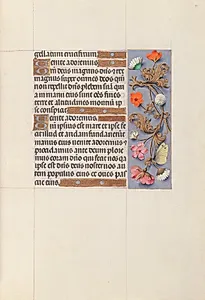 Venite adoremus.
deus magnus dns et rex
magnus super omnes deos qm
non repellit dns plebem suā qa
in manu eius sunt oēs fines
terre et altitudines montiū ip
se conspicit
Venite adoremus.
Qm ipsius est mare et ipse fe
cit illud et aridam fundaverunt
manus eius venite adoremus et
procidamus ante deum plore
mus coram dno qui fecit nos qa
ipse est dns deus noster nos au
tem populus eius et oves pas
cue eius.